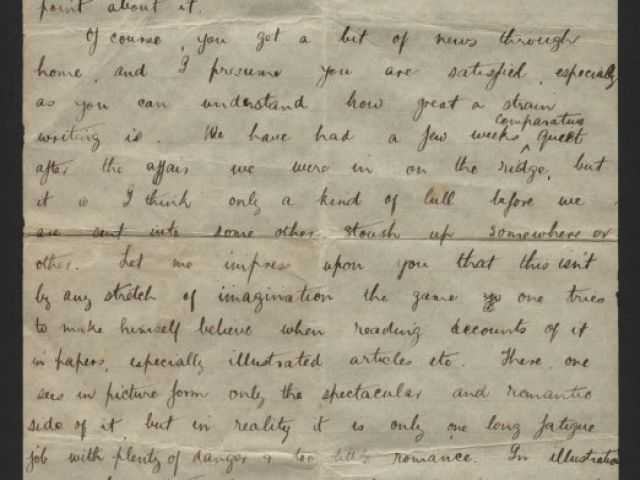 point about it.
Of course, you get a bit of news through
home, and I presume you are satisfied, especially
as you can understand how great a strain
comparative
writing is. We have had a few weeks quiet
after the affair we were in on the ridge, but
it is I think only a kind of lull before we
are sent into some other stoush up somewhere or
other. Let me impress upon you that this isn't
by any stretch of imagination the game one tries
to make himself believe when reading accounts of it
in papers, especially illustrated articles etc. There one
sees in picture form only the spectacular and romantic
side of it, but in reality it is only one long fatigue
job with plenty of danger & too little romance. In illustration